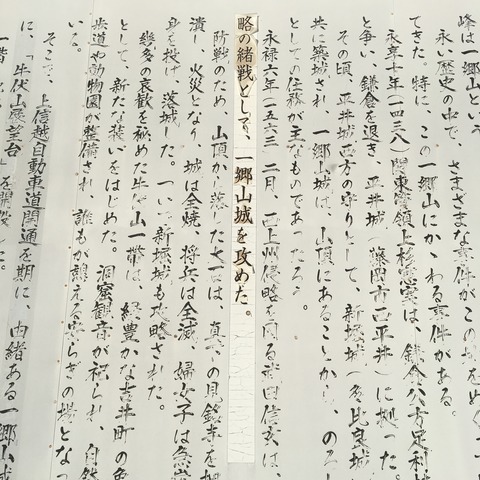 峰は一郷山という
永い歴史の中で、さまざまな事件がこの地をめぐ
てきた。特に、この一郷山にかかわる事件がある。
永享十年（一四三八）関東管領上杉憲実は、鎌倉公方足利持
と争い、鎌倉を退き、平井城（藤岡市西平井）に拠った。
その頃、平井城西方の守りとして、新堀城（多比良城
共に築城され、一郷山城は、山頂にあることから、のろし
としての任務が主なものであったろう。
永禄六年（一五六三 二月、西上州侵略を図る武田信玄は、
略の緒戦として、一郷山城を攻めた。
防戦のため、山頂から落した大石は、真下の見銘寺を押
潰し、火災となり、城は全焼、将兵は全滅、婦女子は急
身を投げ、落城した。ついで新堀城も攻略された。
幾多の哀歓を秘めた牛伏山一帯は、緑豊かな吉井町の
として、新たな装いをはじめた。洞窟観音が祀られ、自然
歩道や動物園が整備され、誰もが憩える安らぎの場となっ
そこで、上信越自動車道開通を期に、内緒ある一郷山城
に、「牛伏山展望台」を開設した。
一階